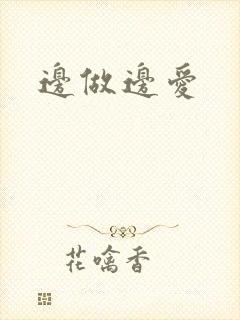 邊做邊愛
花噙香